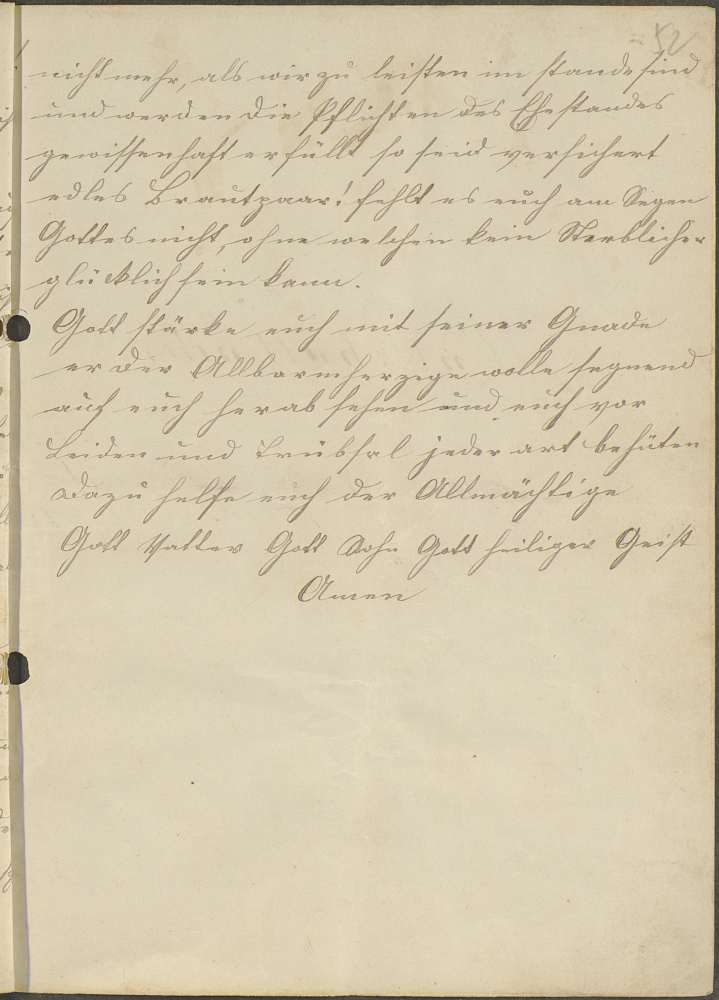 52
nicht mehr, als wir zu leisten im stande sind
und werden die Pflichten des Ehestandes
gewissenhaft erfüllt so seid versichert
edles Brautpaar! fehlt es euch am Segen
Gottes nicht, ohne welchen kein Sterblicher
glücklich sein kann.
Gott stärke euch mit seiner Gnade
er der Allbarmherzige wolle segnend
auf euch herab sehen und euch vor
Leiden und Trübsal jeder art behüten
Dazu helfe euch der Allmächtige
Gott Vatter Gott Sohn Gott heiliger Geist
Amen